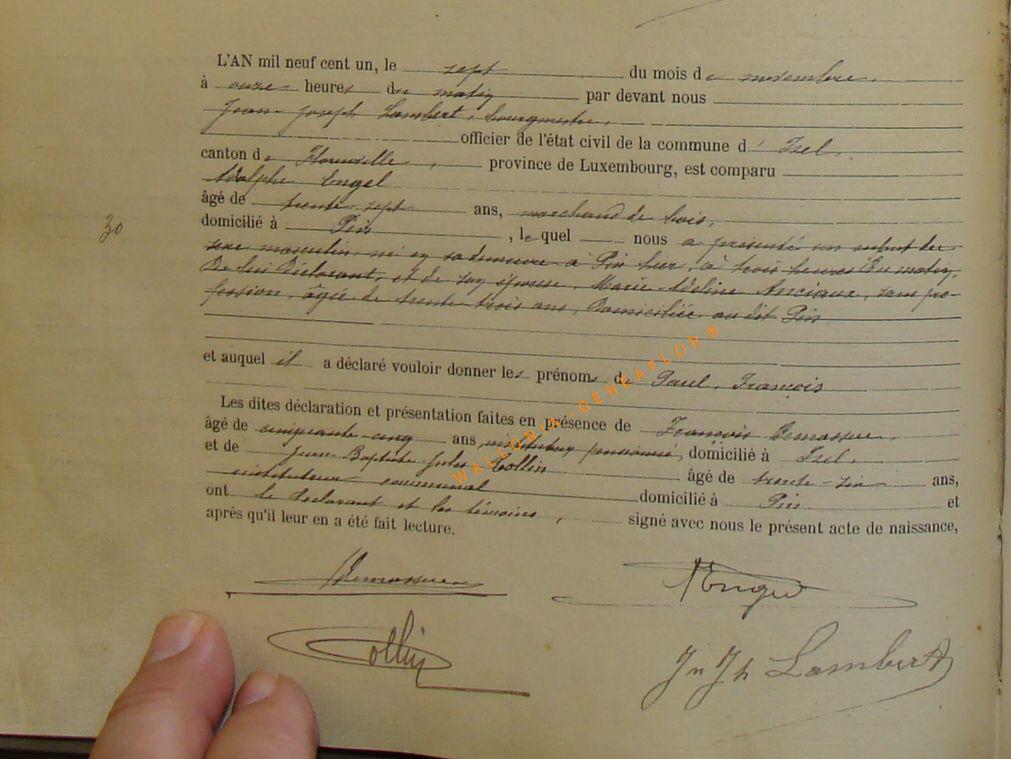 L'AN mil neuf cent un, le sept du mois de novembre.
à onze heures du matin par devant nous
Jean Joseph Lambert, bourgmestre,
officier de l'état civil de la commune d' Izel,
canton de Florenville, province de Luxembourg, est comparu
Adolphe Engel
âgé de trente-sept ans, marchand de bois,
domicilié à Pin, lequel nous a présenté un enfant du
30
sexe masculin, né en sa demeure à Pin hier, à trois heures du matin,
De lui Déclarant, et de son épouse, Marie Adeline Anciaux, sans pro-
fession, âgée de trente-trois ans, Domiciliée au dit Pin
et auquel il a déclaré vouloir donner les prénoms de Paul, François
Les dites déclaration et présentation faites en présence de François
âgé de cinquante-cinq ans, instituteur pensionné, domicilié à Izel,
et de Jean Baptiste Jules Collin âgé de ans,
instituteur communal domicilié à Pin et
ont le Déclarant et les témoins, signé avec nous le présent acte de naissance,
après qu'il leur en a été fait lecture.
AEngel
Collin
Jn Jh Lambert
WALLONIA GENEAFLOR®